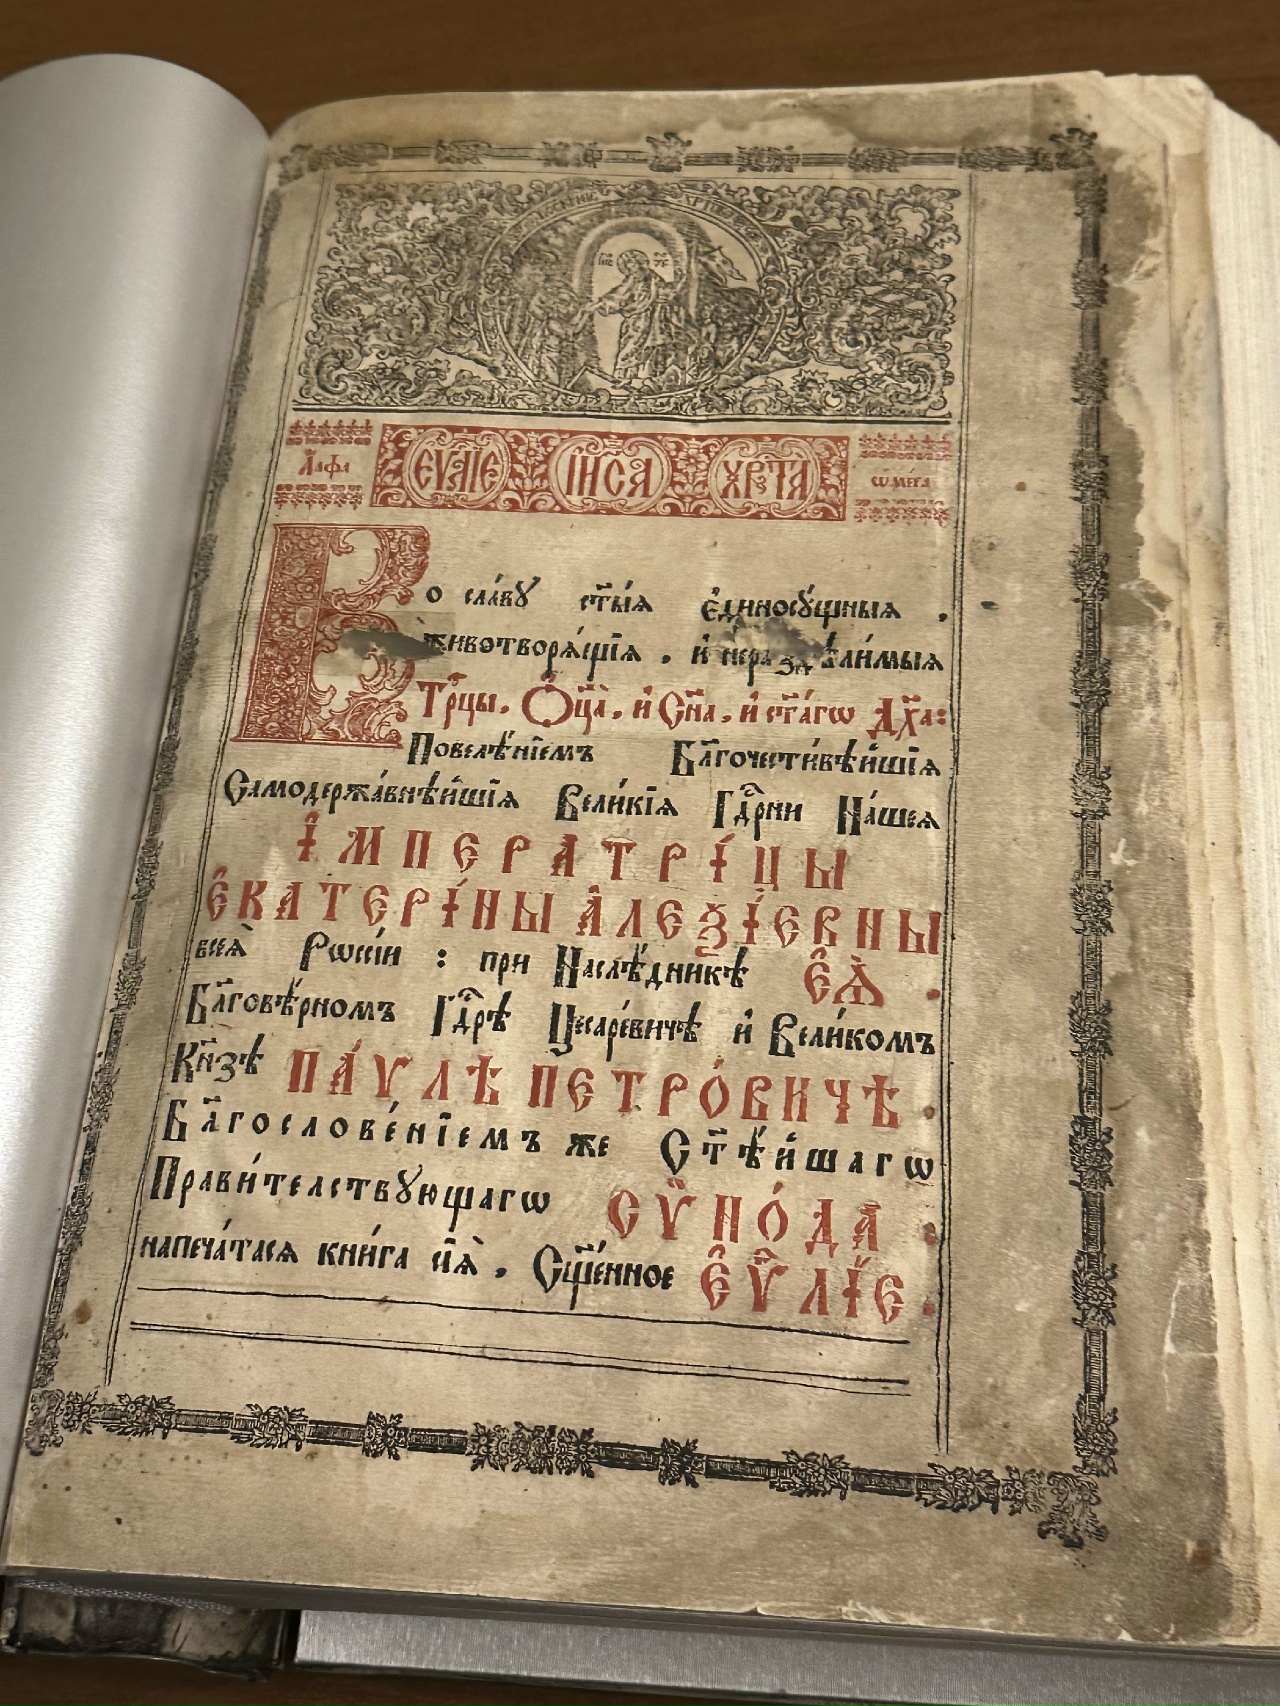 І҆и҃с Хр҃т
А҆́лфа Є҆Ѵ҃ЛІЕ І҆И҃СА ХР҃ТА ѡ҆ме́га
Во сла́вꙋ ст҃ы́ѧ є҆диносꙋ́щныѧ ,
животворѧ́щїѧ , и҆ нераздѣли́мыѧ
Трⷪ҇цы , Ѻ҆ц҃а̀ , и҆ Сн҃а , и҆ ст҃а́гѡ Дх҃а :
Повелѣ́нїемъ Бл҃гочести́вѣйшїѧ
Самодержа́внѣйшїѧ Вели́кїѧ Гдⷭ҇рни На́шеѧ
І҆МПЕРАТРІ́ЦЫ
Є҆КАТЕРІ́НЫ А҆ЛЕѮІ́ЕВНЫ
всеѧ̀ Рѡссі́и : при Наслѣ́дникѣ Є҆Ѧ̀ .
Бл҃говѣ́рномъ Гдⷭ҇рѣ Цесаре́вичѣ и҆ Вели́комъ
Кн҃зѣ ПА́ѴЛѢ ПЕТРО́ВИЧѢ .
Бл҃гослове́нїемъ же Ст҃ѣ́йшагѡ
Прави́телствꙋющагѡ СѴ̈НО́ДА :
напеча́тасѧ кни́га сїѧ̀ , Сщ҃е́нное Є҆Ѵ҃ЛІЕ .